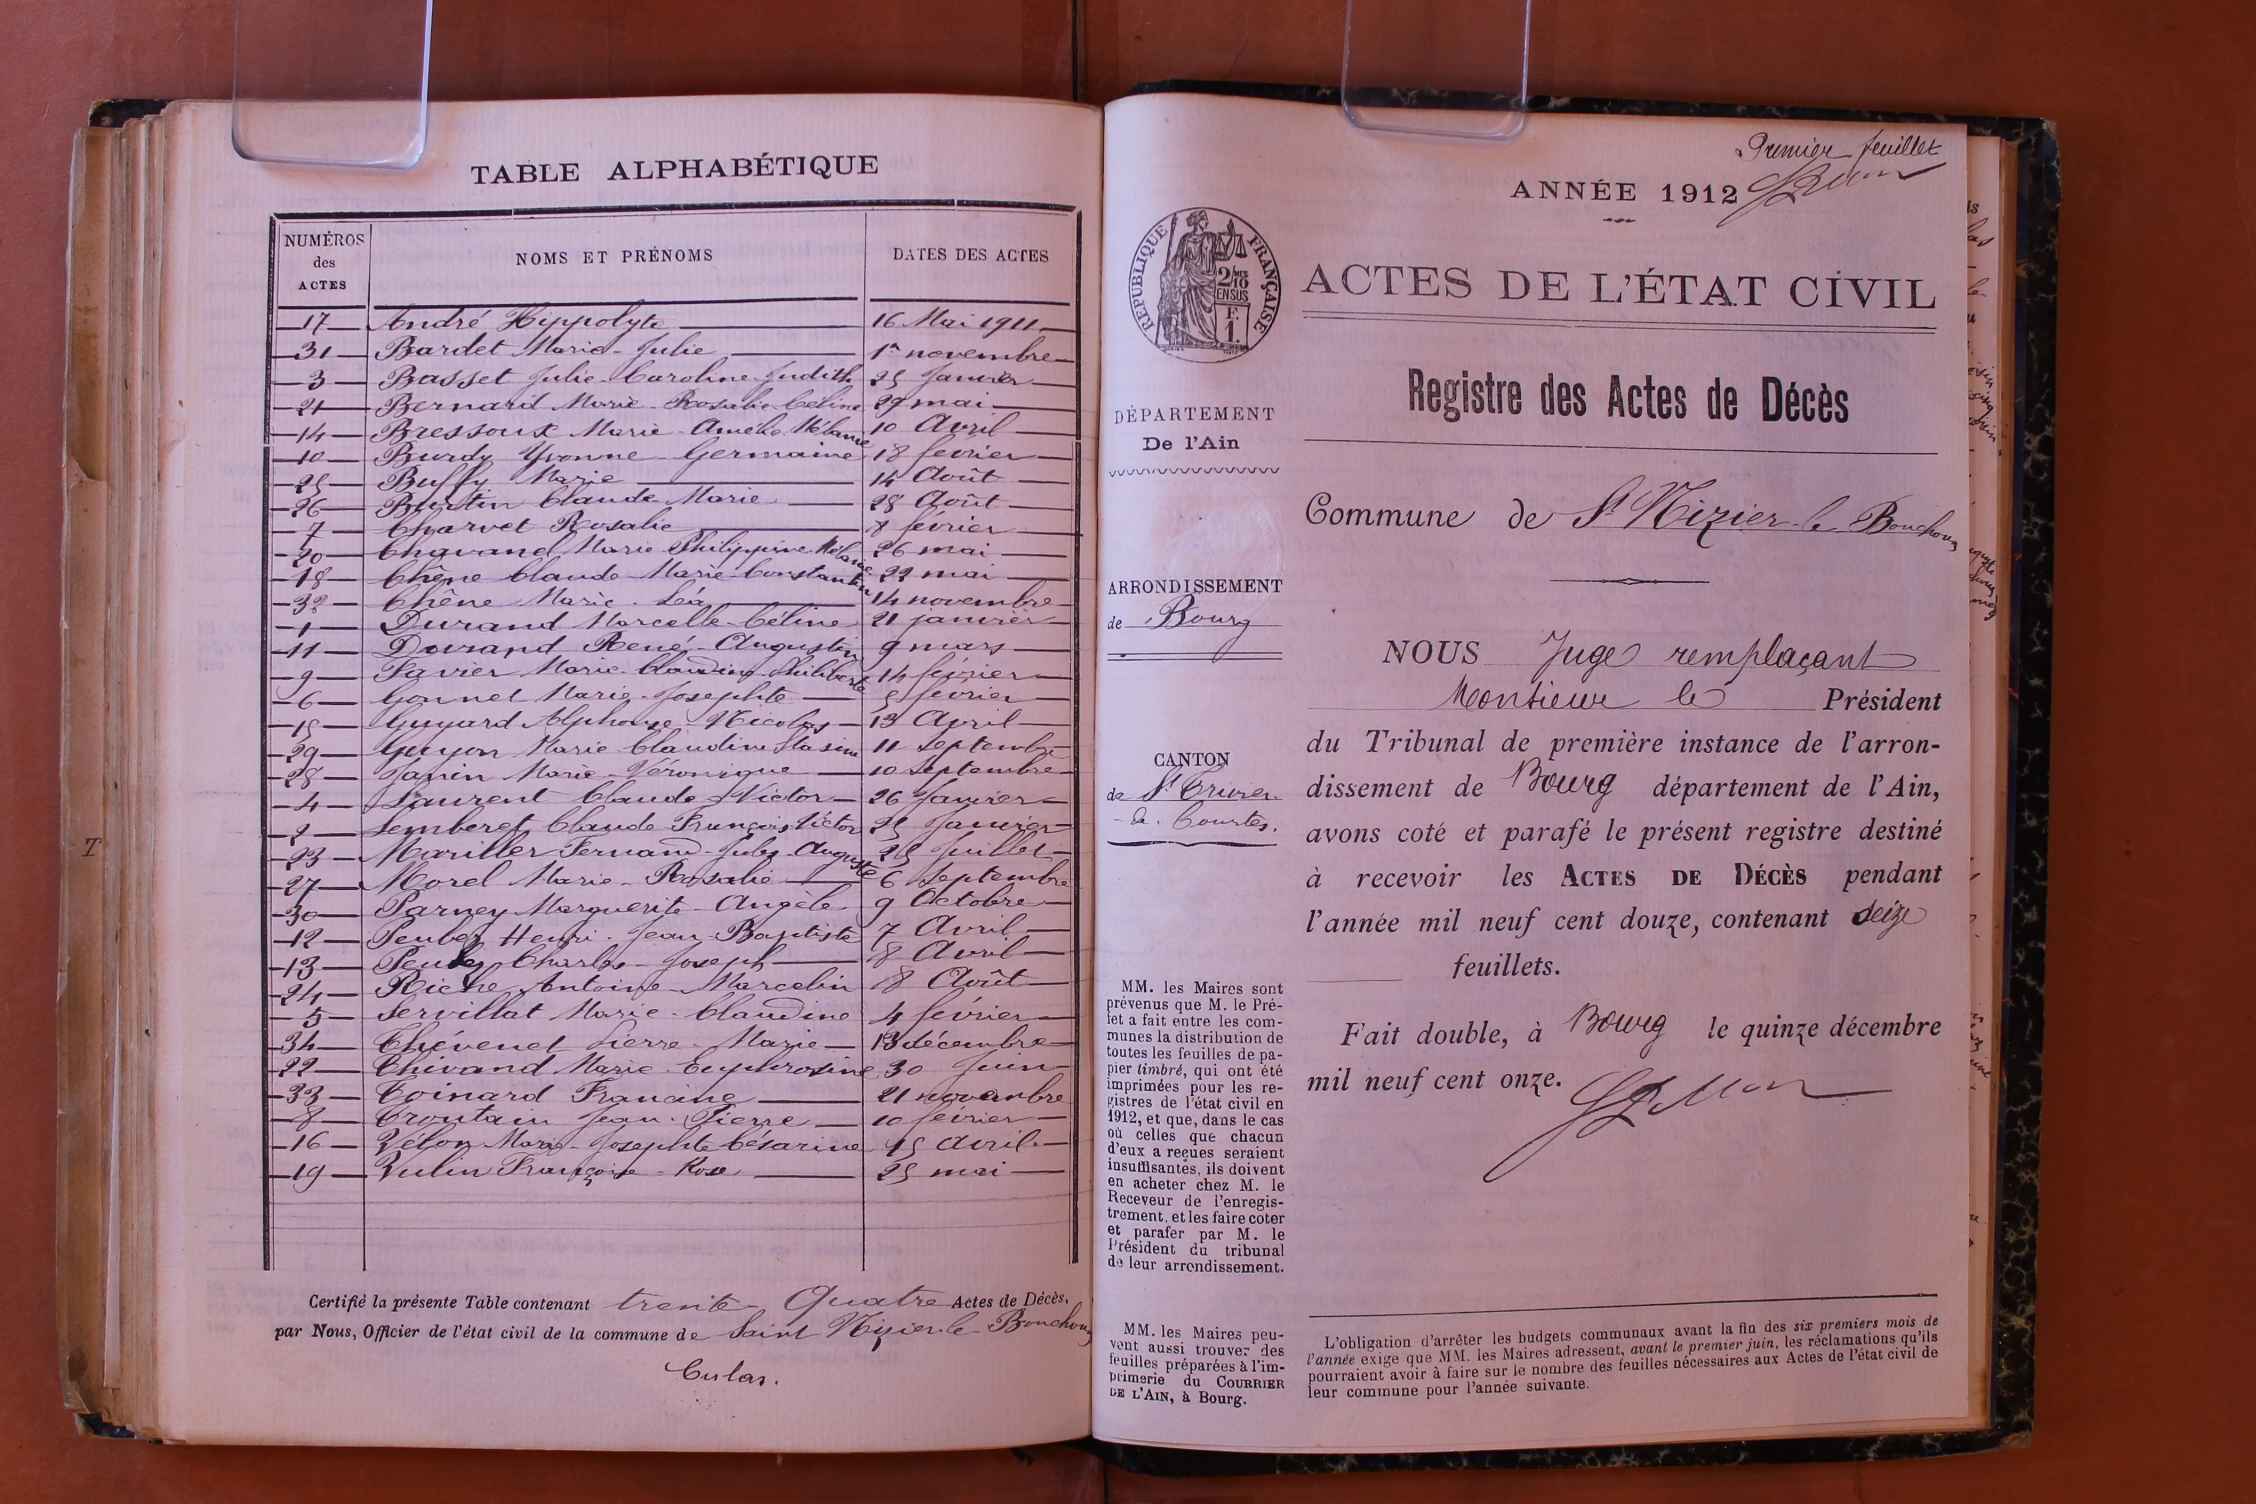 TABLE ALPHABÉTIQUE
NUMÉROS des ACTES NOMS ET PRÉNOMS DATES DES ACTES
17 André Hyppolyte 16 Mai 1911
31 Bardet Marie-Julie 1er novembre
3 Basset Julie-Caroline-Judith 25 Janvier
21 Bernard Marie-Rosalie-Céline 29 mai
14 Bressoux Marie-Amélie Mélanie 10 Avril
10 Burdy Yvonne-Germaine 18 fevrier
25 Buffy Marie 14 Août
26 Burtin Claude Marie 28 Août
7 Charvet Rosalie 8 février
20 Chavand Marie Philippine Mélanie 26 mai
18 Chêne Claude-Marie-Constantin 22 mai
32 Chêne Marie-Léa 14 novembre
1 Durand Marcelle-Céline 21 janvier
11 Durand René-Augustin 9 mars
9 Favier Marie-Claudine-Philiberte 14 février
6 Gonnet Marie-Josephte 5 février
15 Guyard Alphonse-Nicolas 13 Avril
29 Guyon Marie Claudine 11 Septembre
28 Janin Marie-Véronique 10 Septembre
4 Laurent Claude-Victor 26 Janvier
2 Lemberet Claude François Victor 25 Janvier
23 Mariller Fernand-Jules-Auguste 25 Juillet
27 Morel Marie-Rosalie 6 Septembre
30 Parney Marguerite-Angèle 9 Octobre
12 Peubez Henri-Jean-Baptiste 7 Avril
13 Charles-Joseph 8 Avril
24 Riche Antoine-Marcelin 8 Août
5 Servillat Marie-Claudine 4 février
34 Thévenet Pierre-Marie 13 décembre
22 Thivand Marie-Euphrosine 30 Juin
33 Toinard Francine 21 novembre
8 Troutain Jean-Pierre 10 février
16 Velon Marie-Josephte Césarine 15 avril
19 Vulin Françoise-Rose 25 mai
Certifié la présente Table contenant trente Quatre Actes de Décès,
par Nous, Officier de l'état civil de la commune de Saint Nizier-le-Bouchoux
Culas.
T
Premier feuillet
ANNÉE 1912
RÉPUBLIQUE FRANÇAISE
2/10 EN SUS
F. 1.
ACTES DE L'ÉTAT CIVIL
Registre des Actes de Décès
DÉPARTEMENT
De l'Ain
Commune de St Nizier-le Bouchoux
ARRONDISSEMENT
de Bourg
CANTON
de St Trivier
de Courtes.
NOUS Juge remplaçant
Monsieur le Président
du Tribunal de première instance de l'arron-
dissement de Bourg département de l'Ain,
avons coté et parafé le présent registre destiné
à recevoir les ACTES DE DÉCÈS pendant
l'année mil neuf cent douze, contenant seize
feuillets.
Fait double, à Bourg le quinze décembre
mil neuf cent onze.
MM. les Maires sont
prévenus que M. le Pré-
fet a fait entre les com-
munes la distribution de
toutes les feuilles de pa-
pier timbré, qui ont été
imprimées pour les re-
gistres de l'état civil en
1912, et que, dans le cas
où celles que chacun
d'eux a reçues seraient
insuffisantes, ils doivent
en acheter chez M. le
Receveur de l'enregis-
trement, et les faire coter
et parafer par M. le
Président du tribunal
de leur arrondissement.
MM. les Maires peu-
vent aussi trouver des
feuilles préparées à l'im-
primerie du COURRIER
DE L'AIN, à Bourg.
L'obligation d'arrêter les budgets communaux avant la fin des six premiers mois de
l'année exige que MM. les Maires adressent, avant le premier juin, les réclamations qu'ils
pourraient avoir à faire sur le nombre des feuilles nécessaires aux Actes de l'état civil de
leur commune pour l'année suivante.